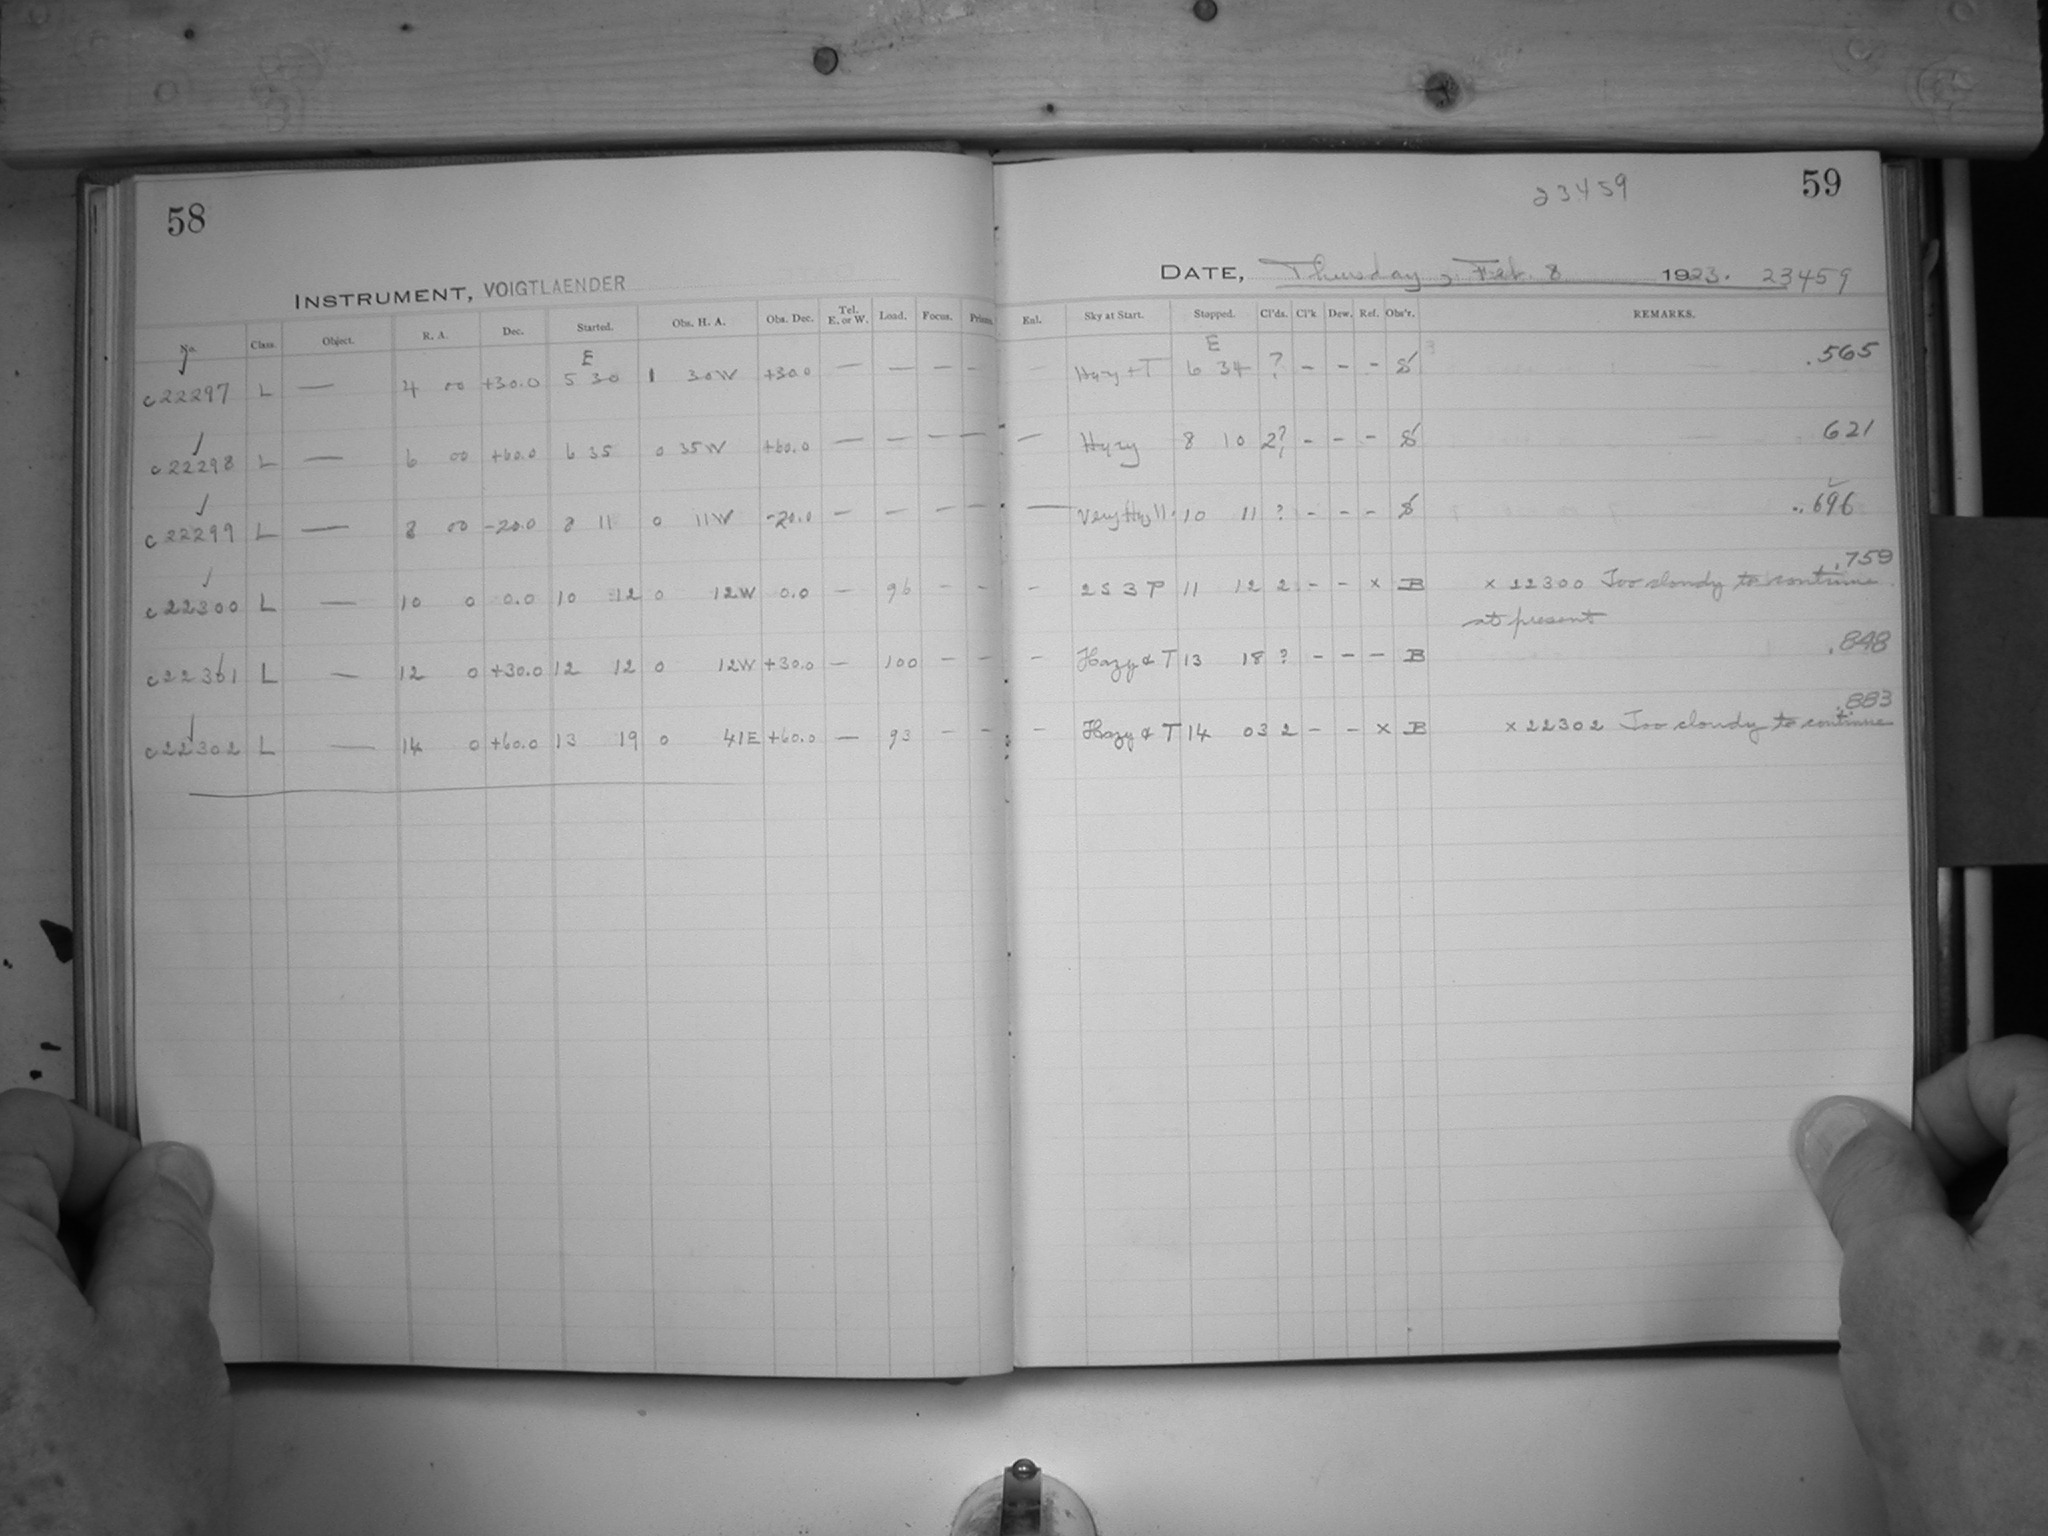 58
INSTRUMENT, VOIGTLAENDER
No. Class. Object. R. A. Dec. Started. Obs. H. A. Obs. Dec. Tel. E. or W. Load. Focus. Prisms.
E
c22297 L — 4 00 +30.0 5 30 1 30W +30.0 — — — —
c22298 L — 6 00 +60.0 6 35 0 35W +60.0 — — — —
c22299 L — 8 00 -20.0 8 11 0 11W -20.0 — — — —
c22300 L — 10 0 0.0 10 12 0 12W 0.0 — 96 — —
c22301 L — 12 0 +30.0 12 12 0 12W +30.0 — 100 — —
c22302 L — 14 0 +60.0 13 19 0 41E +60.0 — 93 — —
23459 59
DATE, Thursday, Feb. 8 1923. 23459
Enl. Sky at Start. Stopped. Cl'ds. Cl'k Dew. Ref. Obs'r. REMARKS.
E
— Hazy + T 6 34 ? - - - S .565
— Hazy 8 10 2? - - - S 621
— Very Hazy 10 11 ? - - - S .696
— 2 S 3 P 11 12 2 - - x B x 22300 Too cloudy to continue .759
at present
— Hazy & T 13 18 ? - - - B .848
— Hazy & T 14 03 2 - - x B x 22302 Too cloudy to continue .883